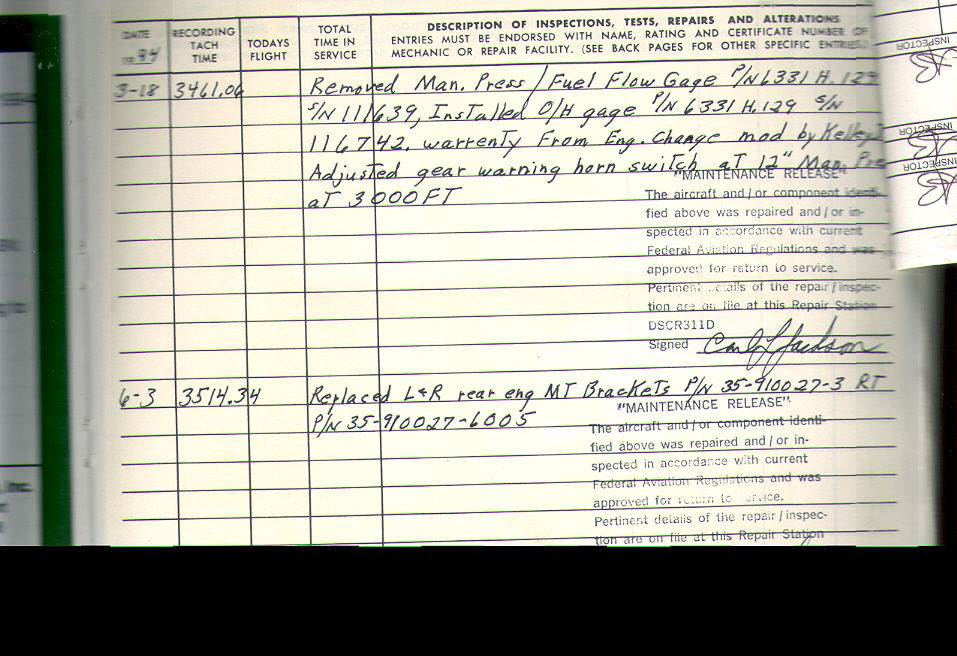 DATE
1984
RECORDING
TACH
TIME
TODAYS
FLIGHT
TOTAL
TIME IN
SERVICE
DESCRIPTION OF INSPECTIONS, TESTS, REPAIRS AND ALTERATIONS
ENTRIES MUST BE ENDORSED WITH NAME, RATING AND CERTIFICATE NUMBER OF
MECHANIC OR REPAIR FACILITY. (SEE BACK PAGES FOR OTHER SPECIFIC ENTRIES
3-18 3461.06 Removed Man. Press / Fuel Flow Gage P/N 6331 H.129
S/N 111639, Installed O/H gage P/N 6331 H.129 S/N
116742. warrenty From Eng. Change mod by Kelley
Adjusted gear warning horn switch aT 12" Man. Pre
aT 3000 FT
"MAINTENANCE RELEASE"
The aircraft and/or component identi-
fied above was repaired and/or in-
spected in accordance with current
Federal Aviation Regulations and was
approved for return to service.
Pertinent details of the repair/inspec-
tion are on file at this Repair Station
DSCR311D
Signed Carl L Jackson
6-3 3514.34 Replaced L&R rear eng MT BrackeTs P/N 35-910027-3 RT
P/N 35-910027-6005
"MAINTENANCE RELEASE"
The aircraft and/or component identi-
fied above was repaired and/or in-
spected in accordance with current
Federal Aviation Regulations and was
approved for return to service.
Pertinent details of the repair/inspec-
tion are on file at this Repair Station
INSPECTOR
INSPECTOR
INSPECTOR
Inc.